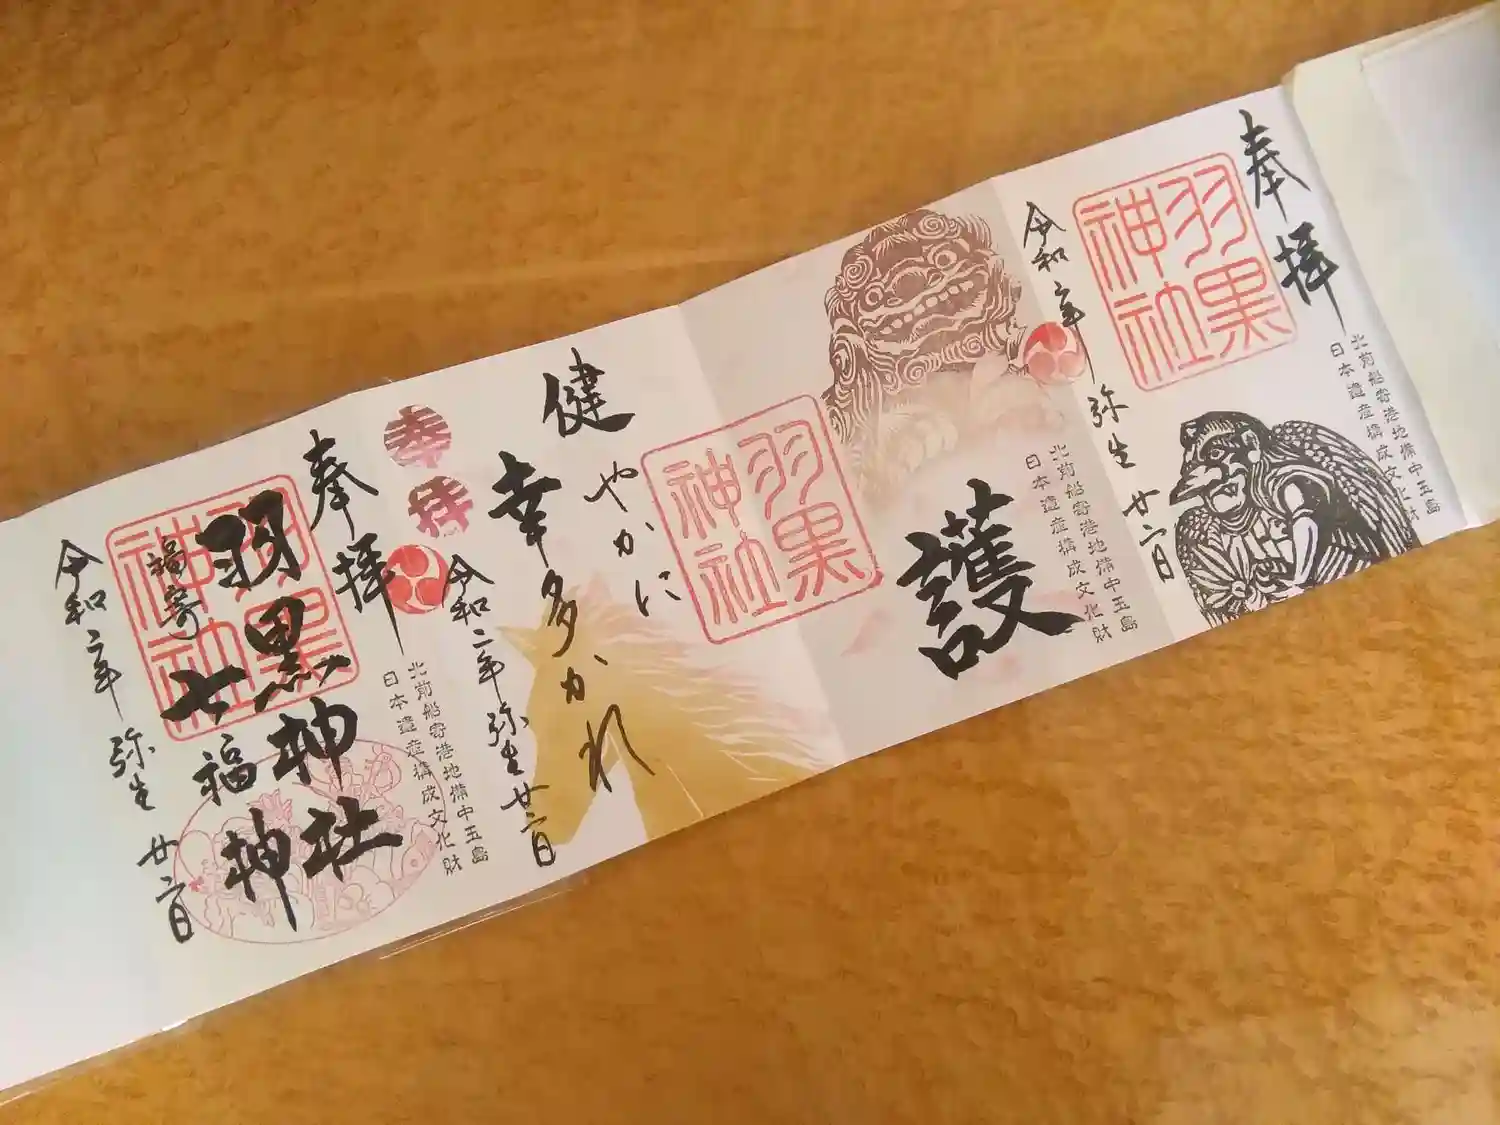 奉拝
羽黒
神社
北前船寄港地備中玉島
日本遺産構成文化財
令和二年弥生廿二日
護
北前船寄港地備中玉島
日本遺産構成文化財
羽黒
神社
健やかに
幸多かれ
奉拝
令和二年弥生廿二日
北前船寄港地備中玉島
日本遺産構成文化財
奉拝
羽黒神社
福寄七福神
羽黒
神社
令和二年弥生廿二日